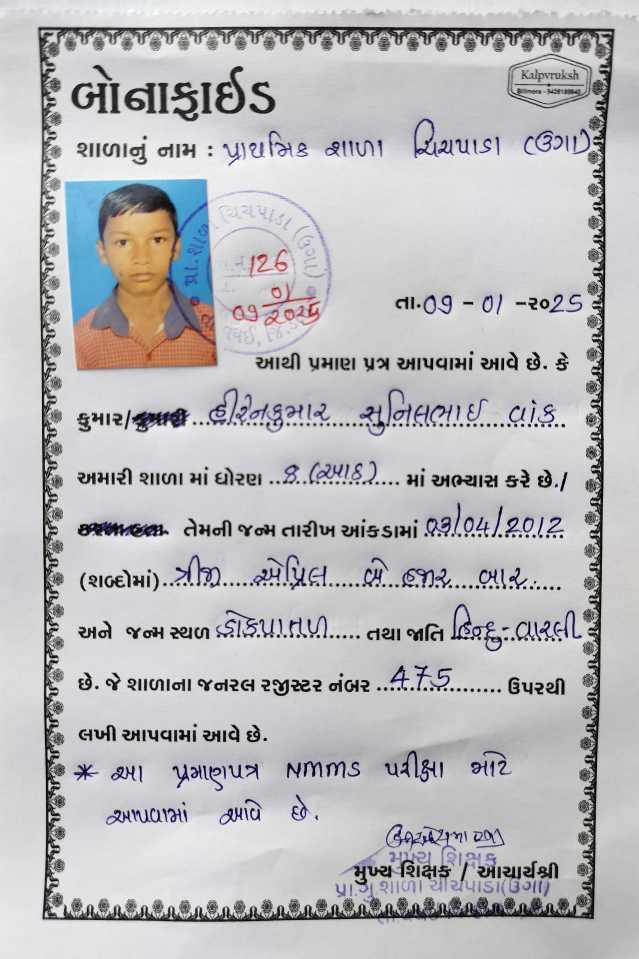 બોનાફાઈડ
Kalpvruksh
Bilimora - 9426189840
શાળાનું નામ : પ્રાથમિક શાળા ચિચપાડા (ઉગા)
પ્રા. શાળા ચિચપાડા (ઉગા)
126
01
09 2025
તા.09 - 01 -૨૦25
આથી પ્રમાણ પત્ર આપવામાં આવે છે. કે
કુમાર/કુમારી હીરેનકુમાર સુનિલભાઈ વાંક
અમારી શાળા માં ધોરણ 8 (આઠ) માં અભ્યાસ કરે છે./
કરતા હતા. તેમની જન્મ તારીખ આંકડામાં 03/04/2012
(શબ્દોમાં) ત્રીજી એપ્રિલ બે હજાર બાર.
અને જન્મ સ્થળ ડોકપાતળ તથા જાતિ હિન્દુ-વારલી
છે. જે શાળાના જનરલ રજીસ્ટર નંબર 475 ઉપરથી
લખી આપવામાં આવે છે.
* આ પ્રમાણપત્ર NMMS પરીક્ષા માટે
આપવામાં આવે છે.
મુખ્ય શિક્ષક
મુખ્ય શિક્ષક / આચાર્યશ્રી
શાળા ચીચપાડા(ઉગા)